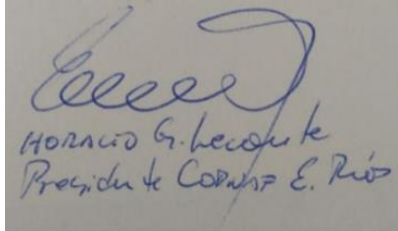 HORACIO G. Leconte
Presidente CODNAF E. Ríos